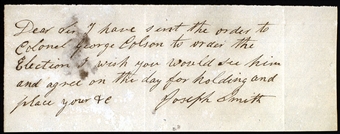 Dear Sir I have sent the order to
Colonel George Colson to order the
Election I wish you would see him
and agree on the day for holding and
place your &c Joseph Smith